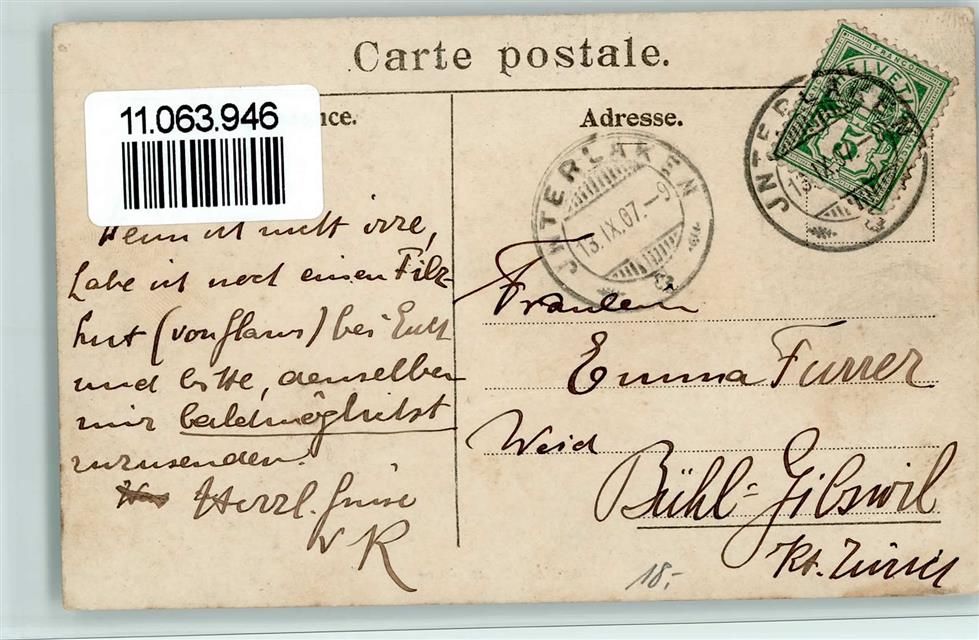 Carte postale.
11.063.946
nce.
Adresse.
FRANCO
HELVETIA
5
INTERLAKEN
13.IX.07.-9
INTERLAKEN
13.IX
Wenn ich nicht irre,
habe ich noch einen Filz-
hut (von Hans) bei Euch
und bitte, denselben
mir baldmöglichst
zuzusenden.
Herzl. Grüsse
v R
Fräulein
Emma Furrer
Weid
Bühl=Gibswil
Kt. Zürich
18.-